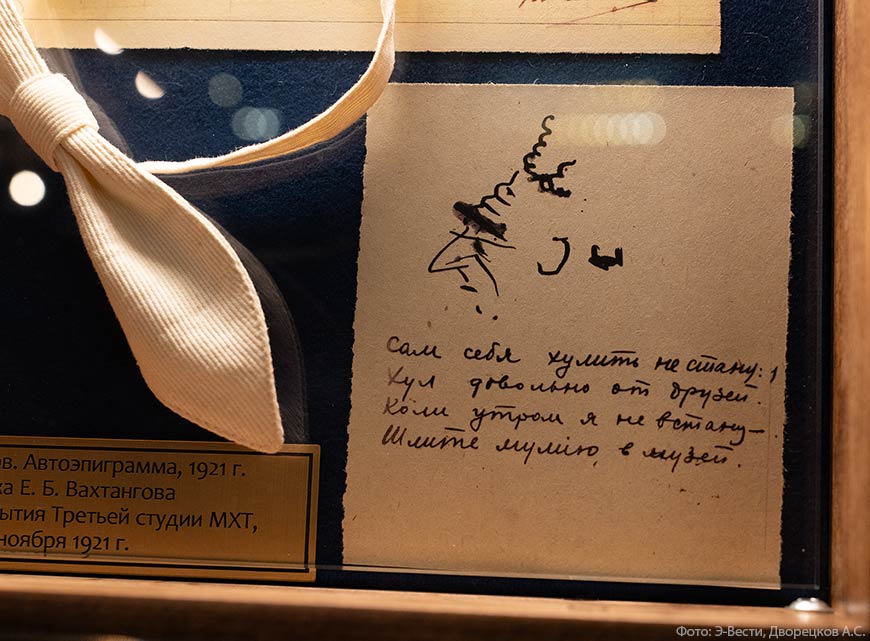 Сам себя хулить не стану:
Хул довольно от друзей.
Коли утром я не встану—
Шлите мумію в музей.
ов. Автоэпиграмма, 1921 г.
ка Е. Б. Вахтангова
ытия Третьей студии МХТ,
ноября 1921 г.
Фото: Э-Вести, Дворецков А.С.